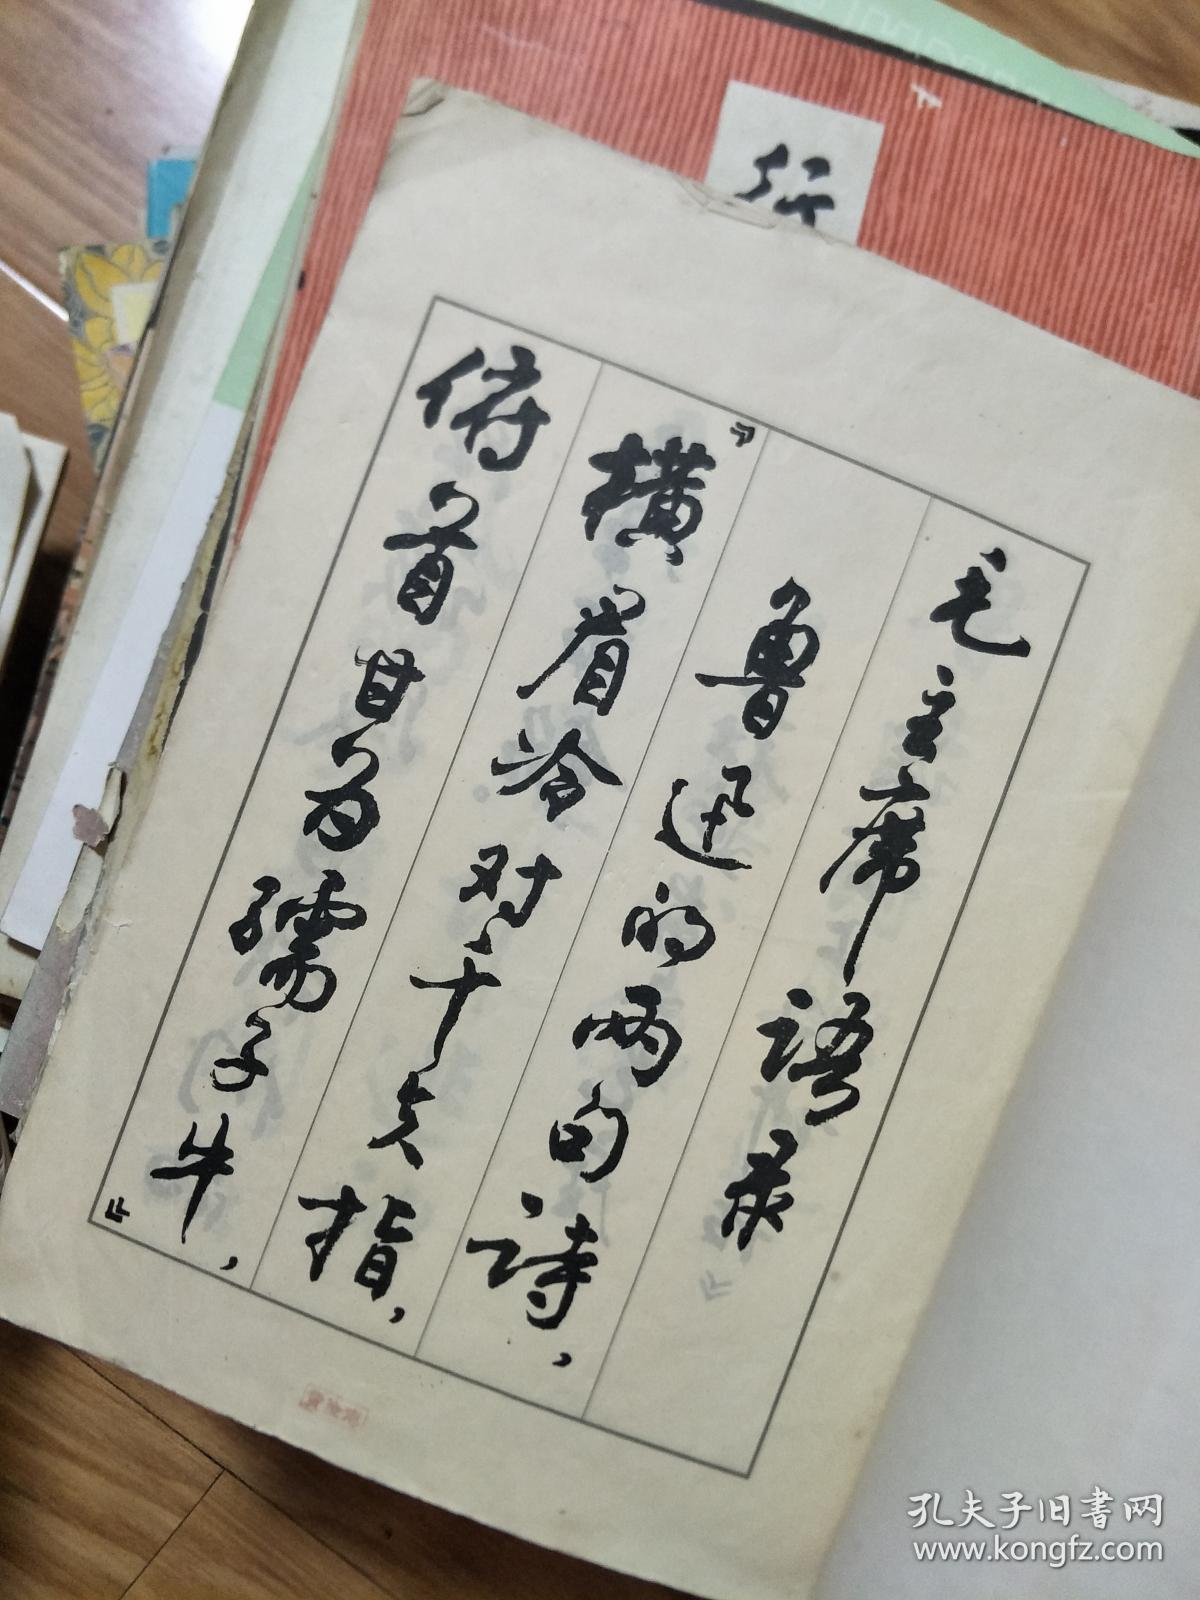 行
毛主席语录
鲁迅的两句诗，
《横眉冷对千夫指，
俯首甘为孺子牛，》
孔夫子旧书网
www.kongfz.com